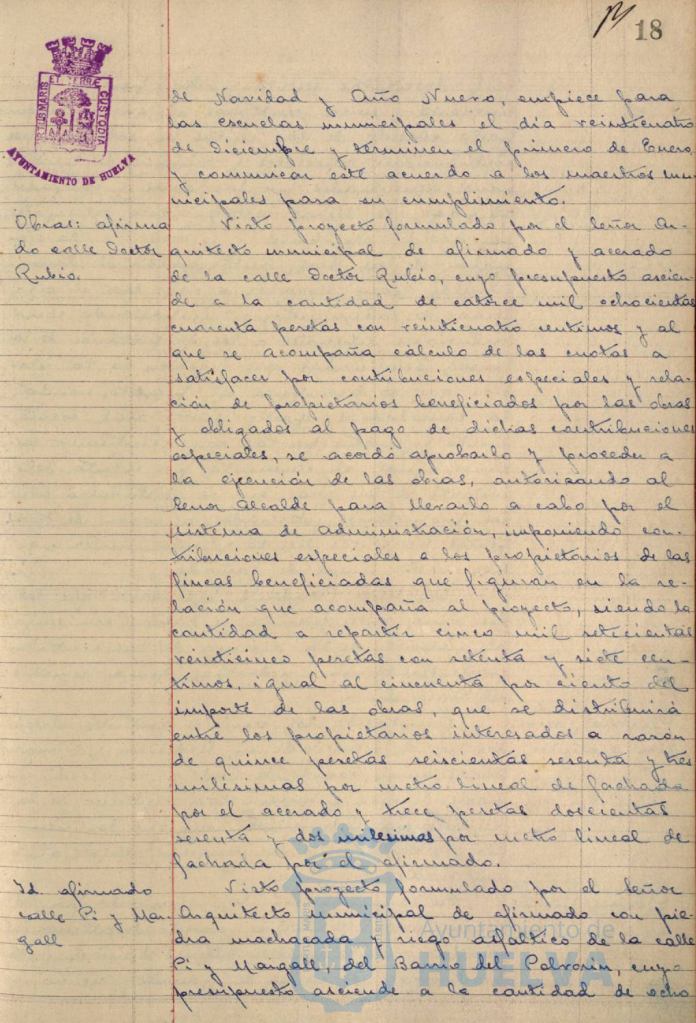 18
PORTUS MARIS ET TERRAE CUSTODIA
AYUNTAMIENTO DE HUELVA
de Navidad y Año Nuevo, empiece para
las escuelas municipales el día veinticuatro
de Diciembre y terminen el primero de Enero
y comunicar este acuerdo a los maestros mu-
nicipales para su cumplimiento.
Obras: afirma
do calle Doctor
Rubio.
Visto proyecto formulado por el Señor Ar-
quitecto municipal de afirmado y acerado
de la calle Doctor Rubio, cuyo presupuesto ascien-
de a la cantidad de catorce mil ochocientas
cuarenta pesetas con veinticuatro centimos y al
que se acompaña cálculo de las cuotas a
satisfacer por contribuciones especiales y rela-
ción de propietarios beneficiados por las obras
y obligados al pago de dichas contribuciones
especiales, se acordó aprobarlo y proceder a
la ejecución de las obras, autorizando al
Señor Alcalde para llevarlo a cabo por el
sistema de administración, imponiendo con-
tribuciones especiales a los propietarios de las
fincas beneficiadas que figuran en la re-
lación que acompaña al proyecto, siendo la
cantidad a repartir cinco mil setecientas
veinticinco pesetas con setenta y siete cen-
timos, igual al cincuenta por ciento del
importe de las obras, que se distribuirá
entre los propietarios interesados a razón
de quince pesetas seiscientas sesenta y tres
milésimas por metro lineal de fachada
por el acerado y trece pesetas doscientas
sesenta y dos milesimas por metro lineal de
fachada por el afirmado.
Id. afirmado
calle Pi y Mar-
gall
Visto proyecto formulado por el Señor
Arquitecto municipal de afirmado con pie-
dra machacada y riego asfaltico de la calle
Pi y Margall, del Barrio del Polvorin, cuyo
presupuesto asciende a la cantidad de ocho
Ayuntamiento de
HUELVA